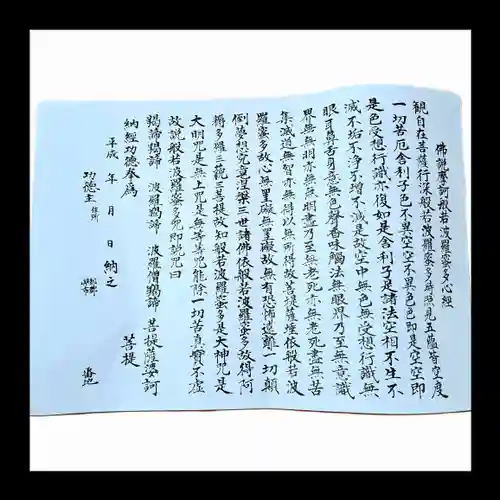 佛說摩訶般若波羅蜜多心經
觀自在菩薩行深般若波羅蜜多時照見五蘊皆空度
一切苦厄舍利子色不異空空不異色色即是空空即
是色受想行識亦復如是舍利子是諸法空相不生不
滅不垢不淨不增不減是故空中無色無受想行識無
眼耳鼻舌身意無色聲香味觸法無眼界乃至無意識
界無無明亦無無明盡乃至無老死亦無老死盡無苦
集滅道無智亦無得以無所得故菩提薩埵依般若波
羅蜜多故心無罣礙無罣礙故無有恐怖遠離一切顛
倒夢想究竟涅槃三世諸佛依般若波羅蜜多故得阿
耨多羅三藐三菩提故知般若波羅蜜多是大神咒是
大明咒是無上咒是無等等咒能除一切苦真實不虛
故說般若波羅蜜多咒即說咒曰
羯諦羯諦 波羅羯諦 波羅僧羯諦 菩提薩婆訶
納經功德奉為 菩提
平成 年 月 日 納之
功德主 住所